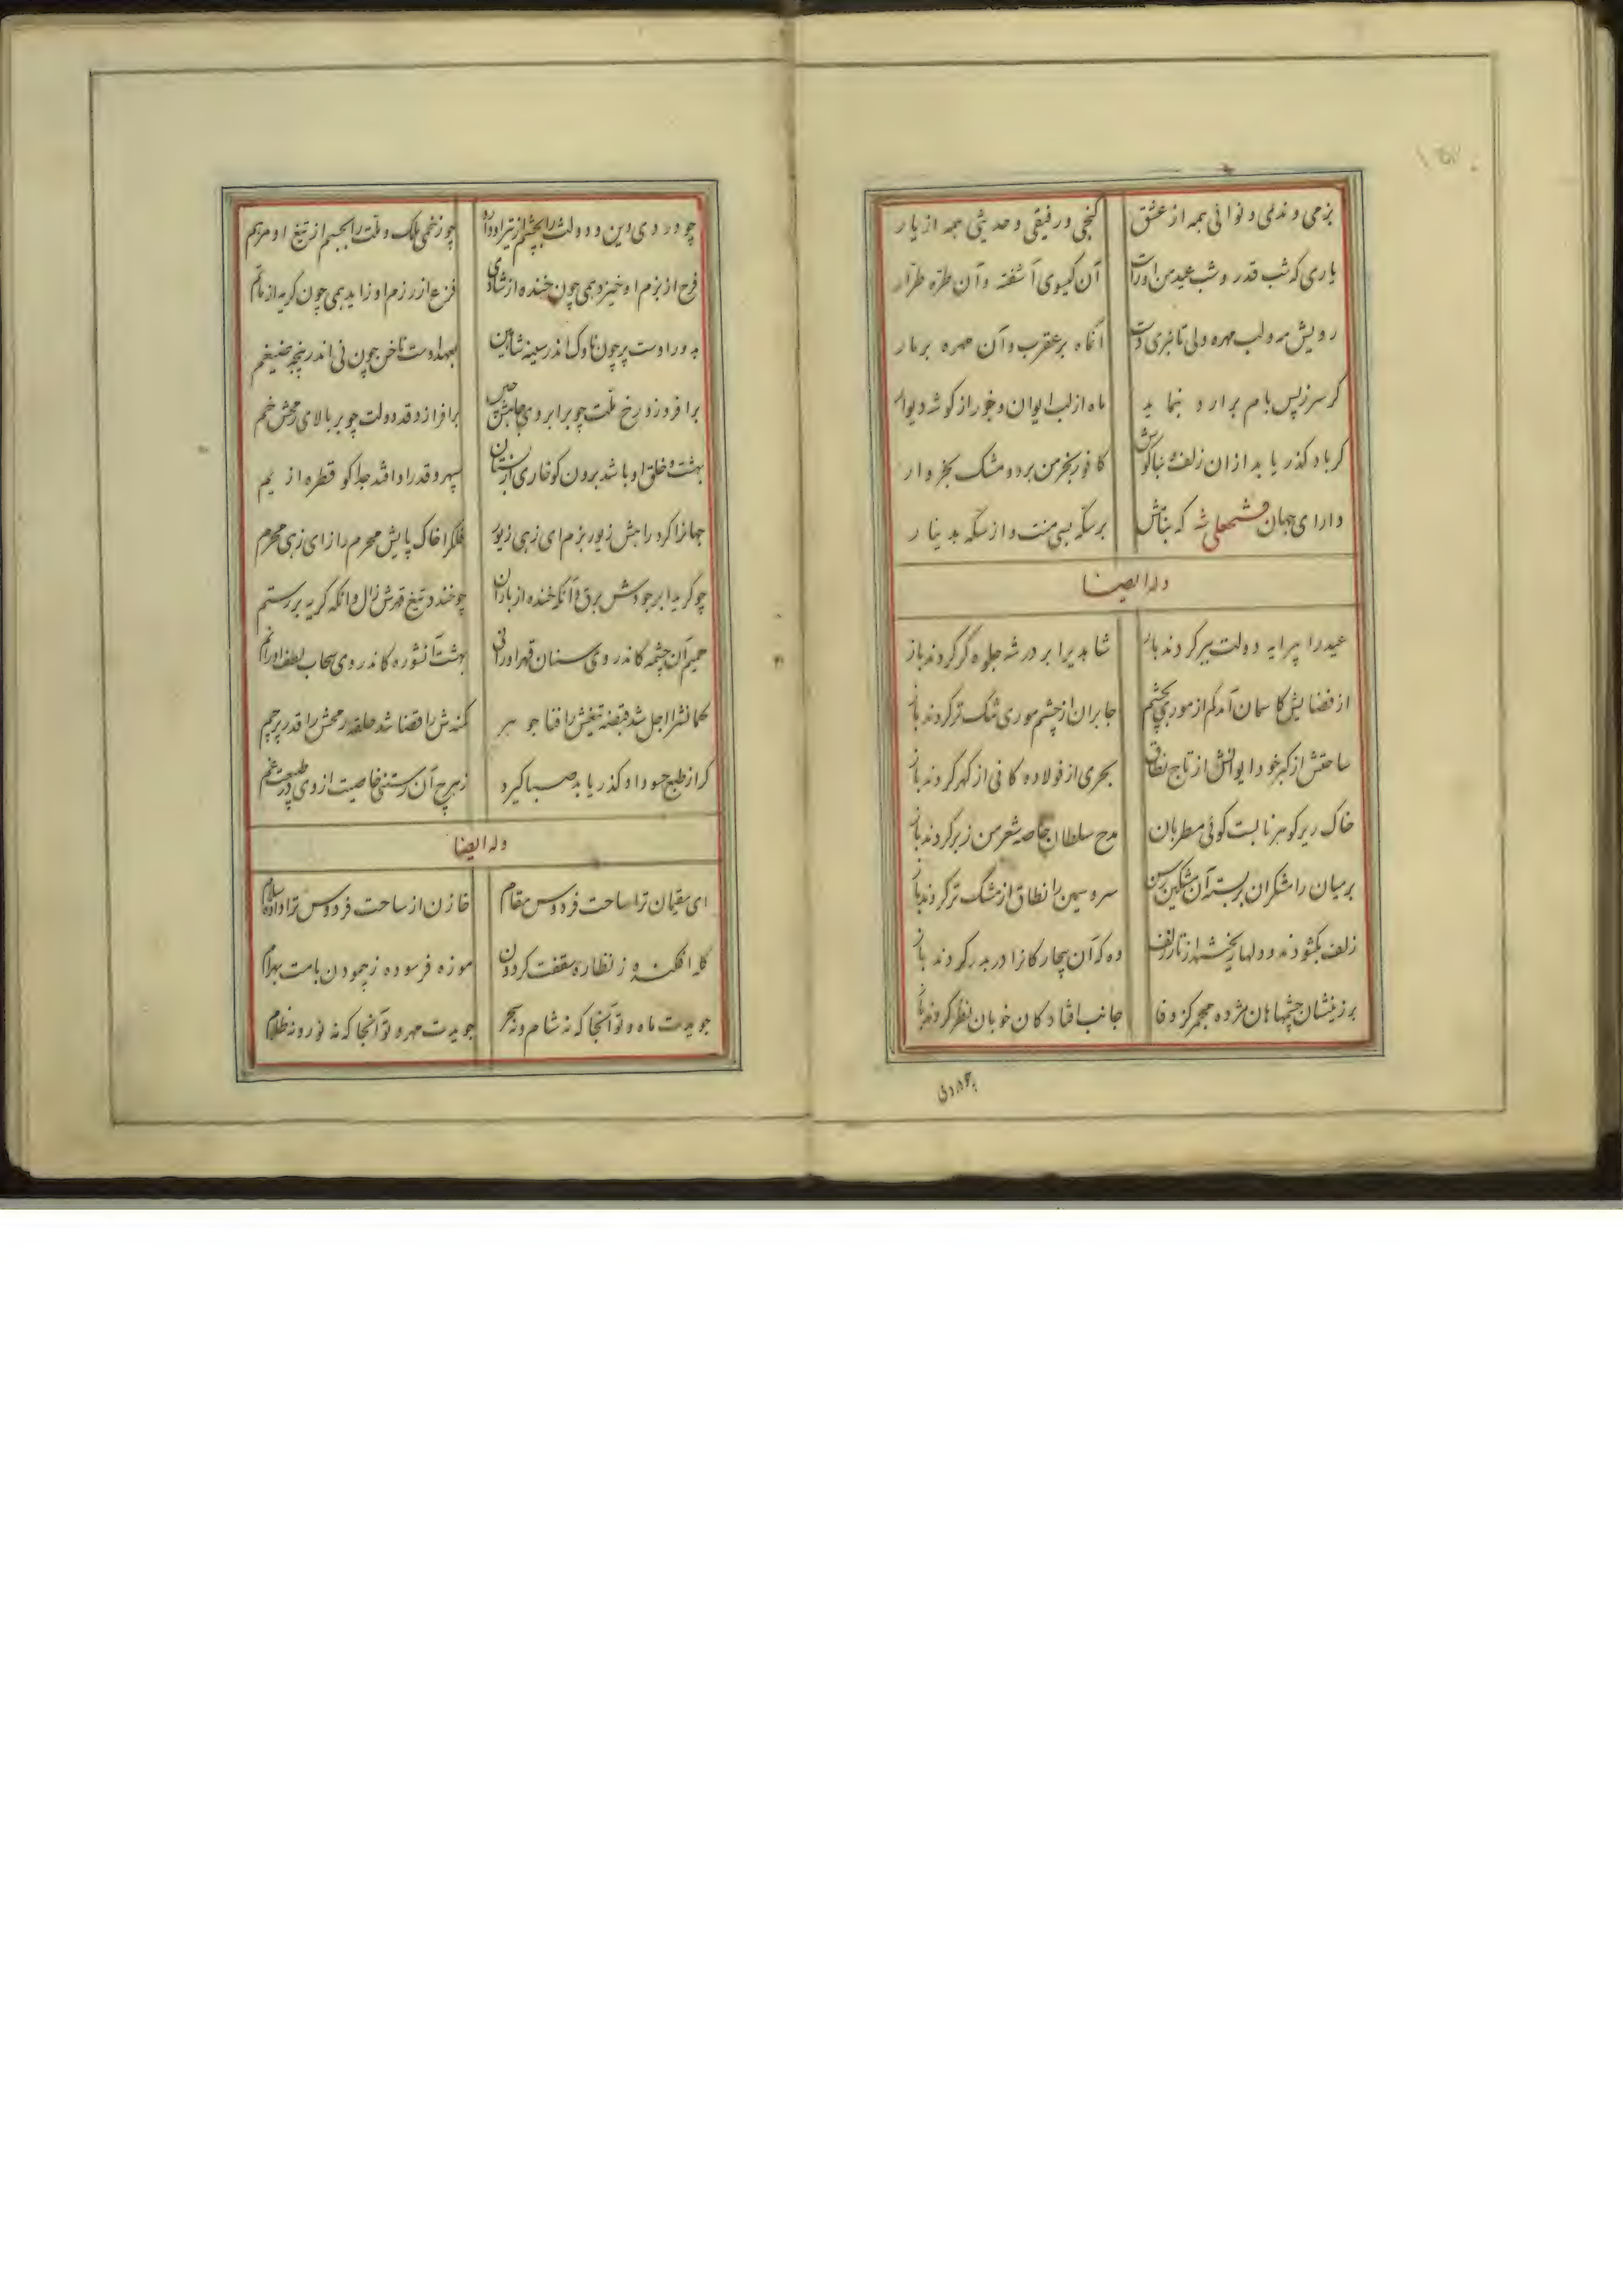 بزمی و ندیمی و نوائی همه از عشق
کنجی و رفیقی و حدیثی همه از یار
یاری که شب قدر و شب عید من اوراست
آن کیسوی آشفته و آن طره طرار
رویش مه و لب مهره ولی تا نبری دست
آن ماه بر عقرب و آن مهره بر مار
کر سر ز پس بام برارد و بنماید
ماه از لب ایوان و خور از کوشه دیوار
کر باد کذر یابد ازان زلف و بناکوش
کافور بخرمن برد و مشک بخروار
دارای جهان فتحعلی شه که بنامش
بر سکه بسی منت و از سکه بدینار
وله ایضا
عید را پیرایه دولت ببر کردند باز
شاهدیرا بر در شه جلوه کر کردند باز
از فضایش کاسمان آمد کم از موری بچشم
جا بر آن از چشم موری تنک تر کردند باز
ساحتش از کبر خود ایوانش از تاج نطاق
بحری از فولاد و کانی از کهر کردند باز
خاک ریز کوهر نابست کوئی مطربان
مدح سلطان خاصه شعر من زبر کردند باز
بر میان رامشکران بربسته آن مشکین رسن
سرو سیمین را نطاق از مشک تر کردند باز
زلف بکشودند و دلها ریخت از تار زلف
وه که آن بیچارکانرا دربدر کردند باز
برزنیشان چشمها هان مژده مجمر کز وفا
جانب افتادکان خوبان نظر کردند باز
چو درد دی دین و دولت را بچشم از تیر او دارو
چو زخمی ملک و ملت را بجسم از تیغ او مرهم
فرح از بزم او خیزد همی چون خنده از شادی
فزع از رزم او زاید همی چون کریه از ماتم
بدور اوست پر چون ناوک اندر سینه شاهین
بعهد اوست ناخن چون نی اندر پنجه ضیغم
برافروزد رخ ملت چو بر ابروی جاهش چین
برافرازد قد دولت چو بر بالای رمحش خم
بهشت و خلق او باشد برون کو خاری از بستان
سپهر و قدر او افتد جدا کو قطره از یم
جهانرا کرد راهش زیور بزم ای زهی زیور
فلک را خاک پایش محرم راز ای زهی محرم
چو کرید ابر جودش برق و آنکه خنده از باران
چو خندد تیغ قهرش زال و آنکه کریه بر رستم
حمیم آن چشمه کاندر وی سنان قهر او رانی
بهشت آنشوره کاندر وی سحاب لطف او را نم
کمانشرا اجل شد قبضه تیغش را فنا جوهر
کمندش را قضا شد حلقه رمحش را قدر پرچم
کر از طبع حسود او کذر یابد صبا کیرد
ز هرچ آن رستنی خاصیت از وی در طبیعت غم
وله ایضا
ای مقیمان ترا ساحت فردوس مقام
خازن از ساحت فردوس ترا داده سلام
کله افکنده ز نظاره سقفت کردون
موزه فرسوده ز پیمودن بامت بهرام
جویدت ماه و تو آنجا که نه شام و نه سحر
جویدت مهر و تو آنجا که نه نور و نه ظلام